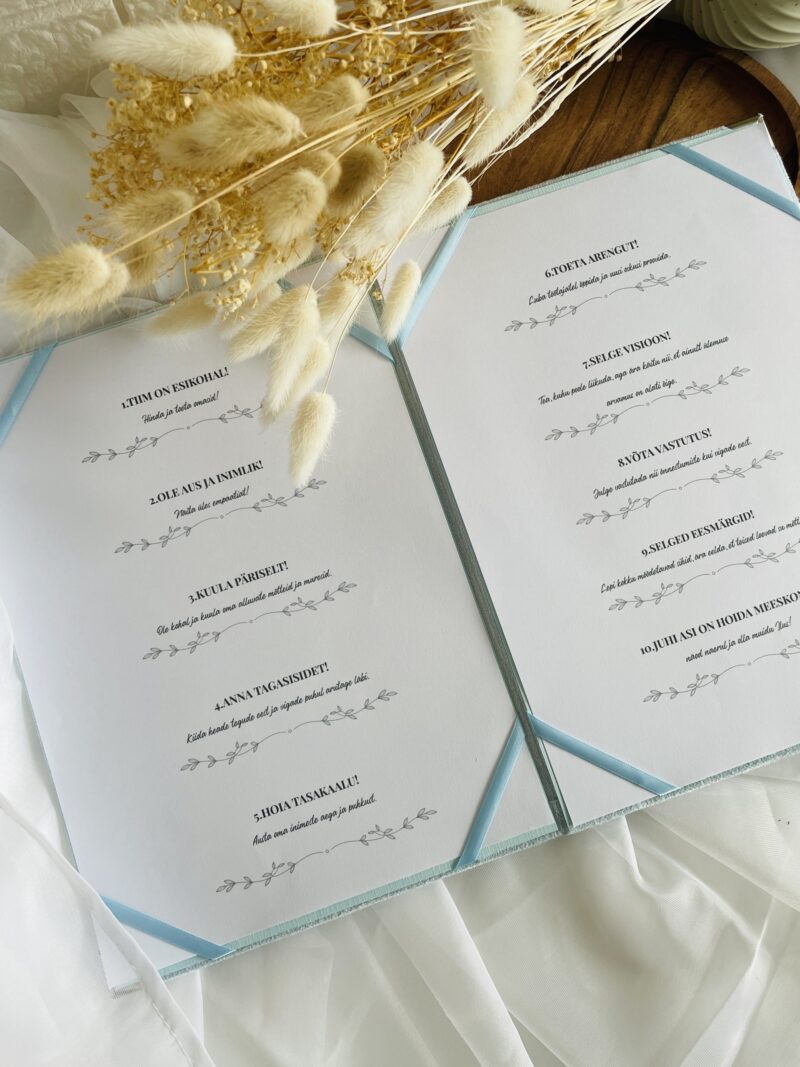 1.TIIM ON ESIKOHAL!
Hinda ja toeta omasid!
2.OLE AUS JA INIMLIK!
Näita üles empaatiat!
3.KUULA PÄRISELT!
Ole kohal ja kuula oma alluvate mõtteid ja muresid.
4.ANNA TAGASISIDET!
Kiida heade tegude eest ja vigade puhul arutage läbi.
5.HOIA TASAKAALU!
Austa oma inimeste aega ja puhkust.
6.TOETA ARENGUT!
Luba töötajatel õppida ja uusi oskusi proovida.
7.SELGE VISIOON!
Tea, kuhu poole liikuda, aga ära käitu nii, et ainult ülemuse
arvamus on alati õige.
8.VÕTA VASTUTUS!
Julge vastutada nii õnnestumiste kui vigade eest.
9.SELGED EESMÄRGID!
Lepi kokku mõõdetavad sihid, ära eelda, et teised loevad su
10.JUHI ASI ON HOIDA
näod naerul ja olla muidu ilus!